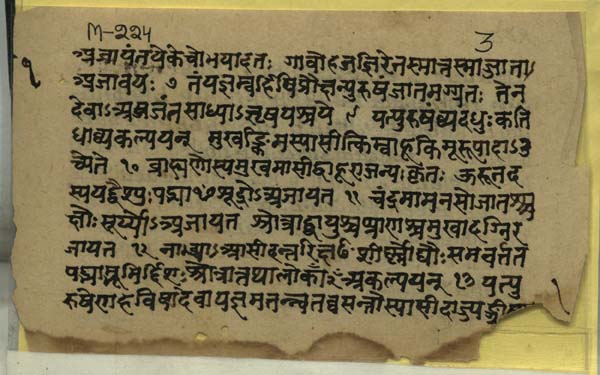 M-224
3
अजायंतयेकेचोभयादतः गावोहजज्ञिरेतस्मात्तस्माज्जाता
अजावयः ७ तंयज्ञम्बर्हिषिप्रौक्षन्पुरुषंजातमग्रतः तेन
देवाऽअयजंतसाध्याऽऋषयश्चये ९ यत्पुरुषंव्यदधुः कति
धाव्यकल्पयन् मुखङ्किमस्यासीत्किम्बाहूकिमूरूपादाऽउ
च्येते १० ब्राह्मणोस्यमुखमासीद्बाहूराजन्यः कृतः ऊरूतद
स्ययद्वैश्यः पद्भ्या७शूद्रोऽअजायत ११ चंद्रमामनसोजातश्च
क्षोः सूर्य्योऽअजायत श्रोत्राद्वायुश्चप्राणश्चमुखादग्निर
जायत १२ नाभ्याऽआसीदन्तरिक्ष७ शीर्ष्णोद्यौः समवर्त्तत
पद्भ्याम्भूमिर्द्दिशः श्रोत्रात्तथालोकाँ२अकल्पयन् १३ यत्पु
रुषेणहविषादेवायज्ञमतन्वत वसन्तोस्यासीदाज्यङ्ग्रीष्म